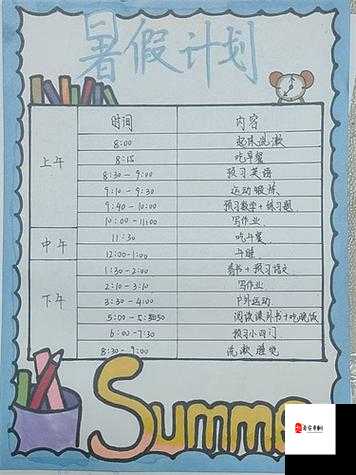 暑假计划
时间 内容
上午
8:00 起床洗漱
8:15 吃早餐
8:30 - 9:00 预习英语
9:10 - 9:30 运动锻炼
9:40 - 10:00 预习数学+练习题
10:00 - 11:00 写作业
中午
11:30 吃午餐
12:00 - 1:00 午睡
下午
1:30 - 2:00 看书+预习语文
2:10 - 3:10 写作业
3:30 - 4:00 户外运动
5:00 - 5:30 阅读课外书+吃晚饭
6:00 - 7:30 预习小四门
8:30 - 9:00 洗漱睡觉
Summe